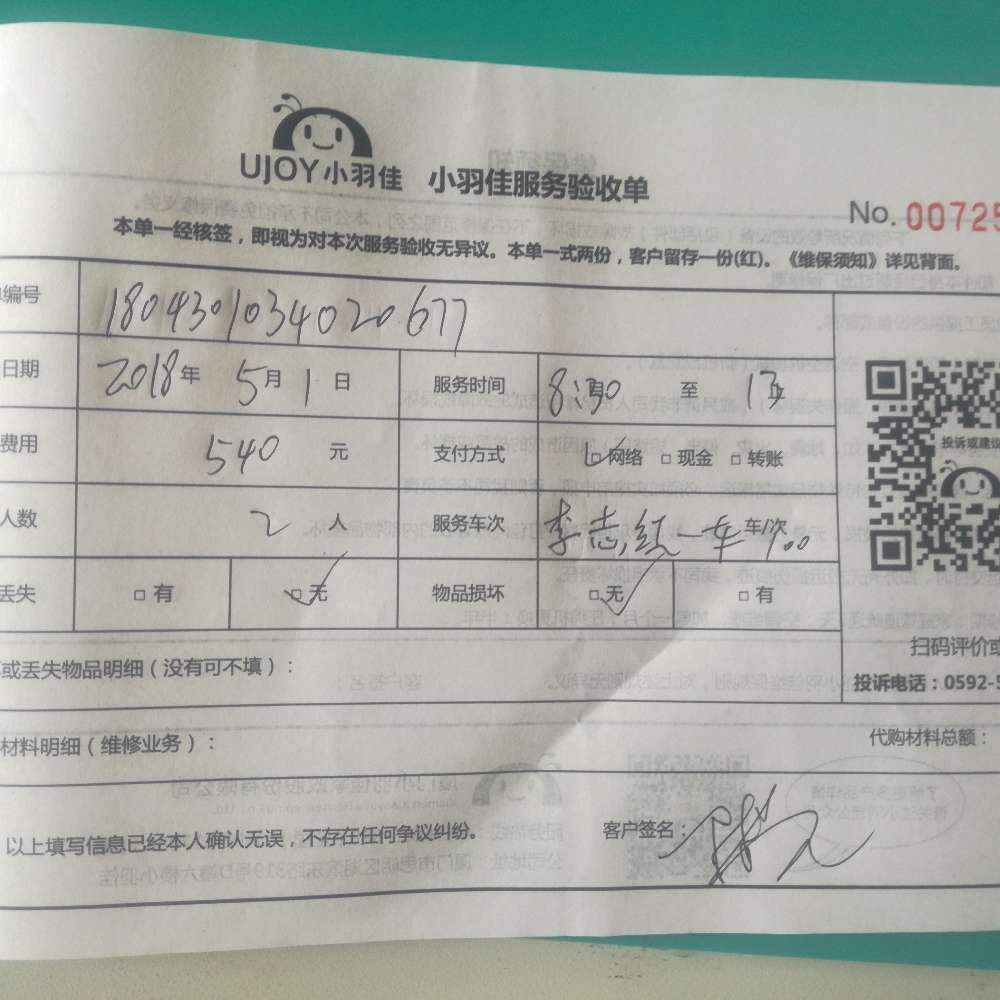 UJOY小羽佳 小羽佳服务验收单
No. 00725
本单一经核签，即视为对本次服务验收无异议。本单一式两份，客户留存一份(红)。《维保须知》详见背面。
编号 1804301034020677
日期 2018年 5月 1日 服务时间 8:30 至 17
费用 540 元 支付方式 □网络 □现金 □转账
投诉或建议
人数 2 人 服务车次 李志 一车 车/次
丢失 □有 □无 物品损坏 □无 □有
扫码评价或
或丢失物品明细（没有可不填）：
投诉电话：0592-5
材料明细（维修业务）：
代购材料总额：
以上填写信息已经本人确认无误，不存在任何争议纠纷。 客户签名：